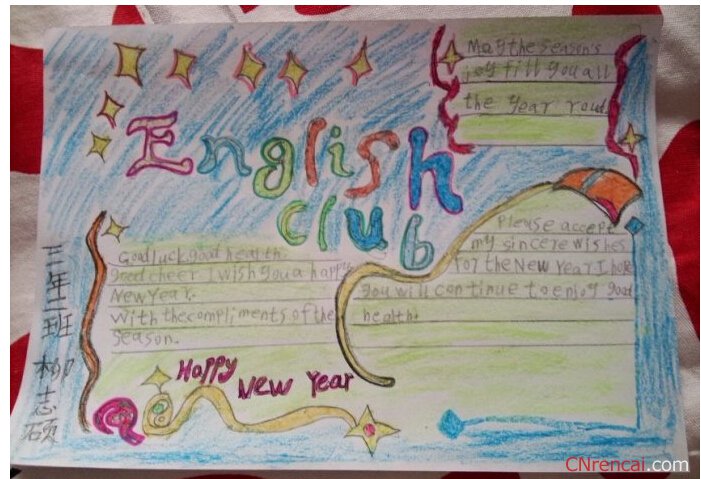 May the season's
joy fill you all
the year roud.
English
club
Good luck,good health.
good cheer I wish you a happy
New year.
With the compliments of the
season.
Please accept
my sincere wishes
for the New Year I hope
you will continue to enjoy good
health!
Happy New Year
三年二班 柳志硕
CNrencai.com